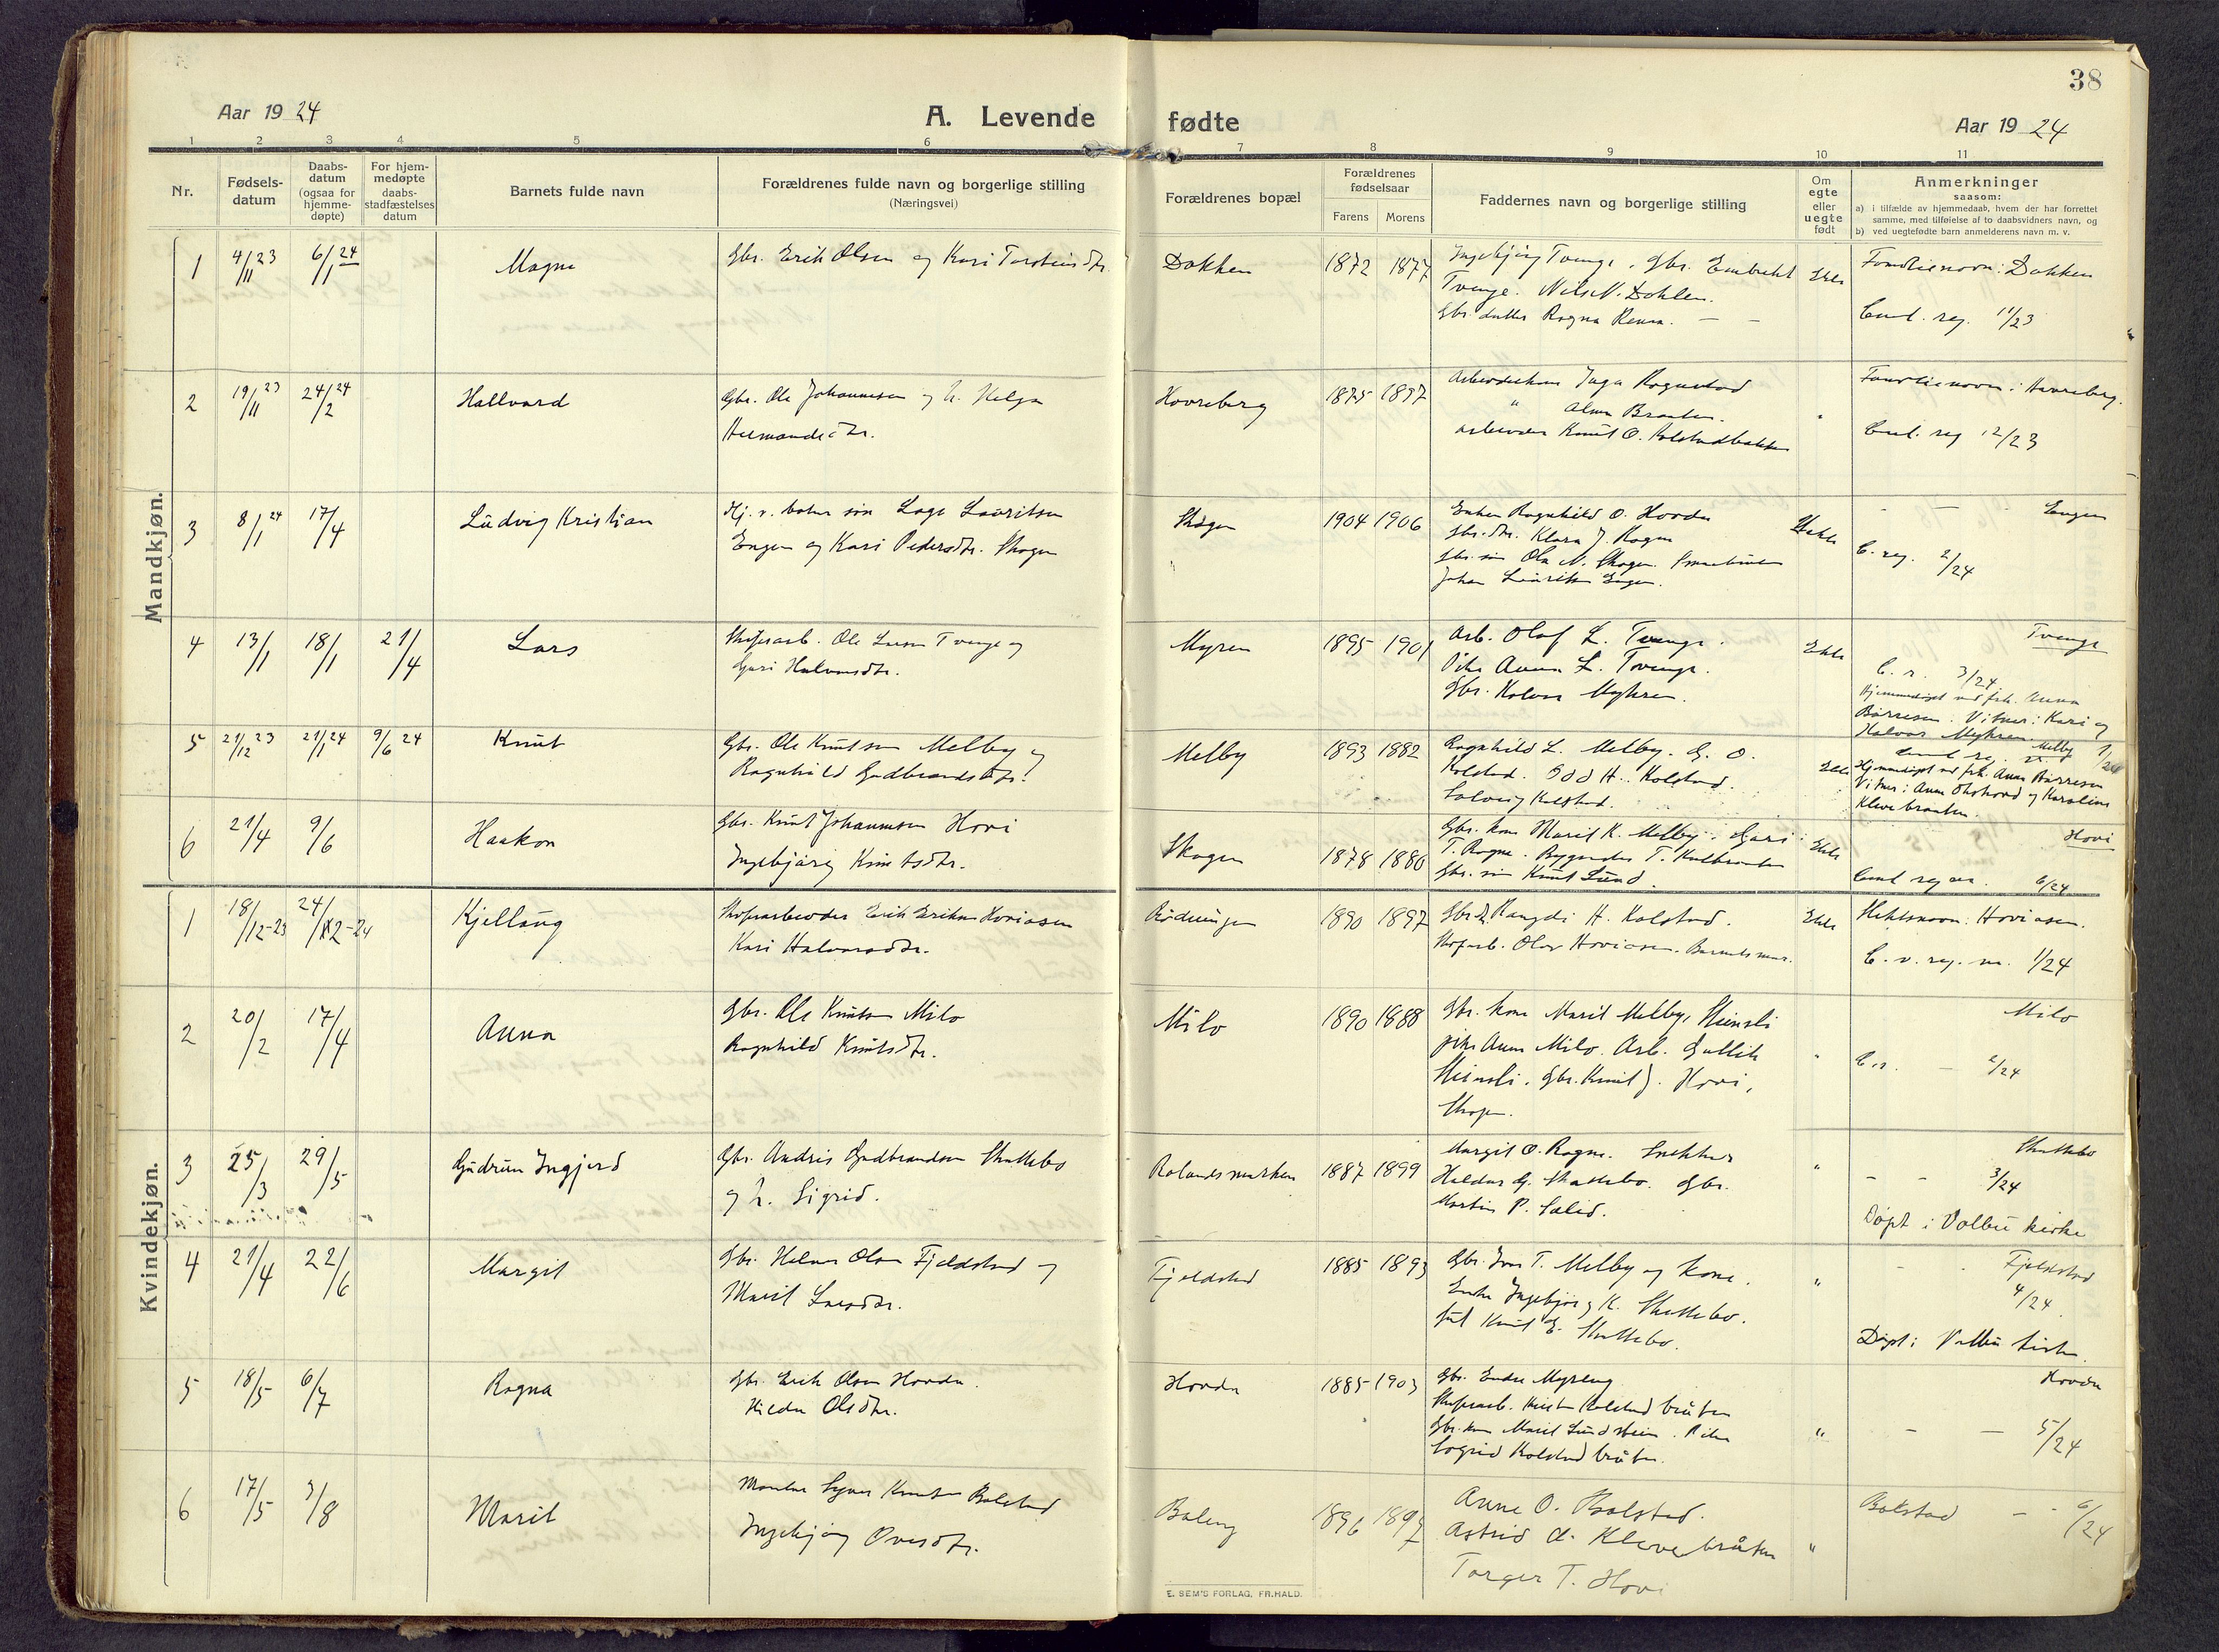 38
Aar 19 24
A. Levende
fødte
Aar 19 24
1 2 3 4 5 6 7 8 9 10 11
Nr.
Fødsels-
datum
Daabs-
datum
(ogsaa for
hjemme-
døpte)
For hjem-
medøpte
daabs-
stadfæstelses
datum
Barnets fulde navn
Forældrenes fulde navn og borgerlige stilling
(Næringsvei)
Forældrenes bopæl
Forældrenes
fødselsaar
Farens Morens
Faddernes navn og borgerlige stilling
Om
egte
eller
uegte
født
Anmerkninger
saasom:
a) i tilfælde av hjemmedaab, hvem der har forrettet
samme, med tilføielse af to daabsvidners navn, og
b) ved uegtefødte barn anmelderens navn m. v.
Mandkjøn.
1 4/11 23 6/1 24 Magne
Gbr. Erik Olsen og Kari Torsteinsdtr.
Dokken 1872 1877
Ingebjørg Tvenge. Gbr. Embrikt
Tvenge. Nils N. Dohlen.
Gbr. datter Ragna
Ekte
Familienavn: Dokken
11/23
2 19/11 23 24/2 24 Hallvard
Gbr. Ole Johannesen og h. Helga
Hovreberg 1875 1897
Inga Rognstad
" Alma Braaten.
Arbeider Knut O. Kolstadbakken
"
Familienavn: Hovreberg.
12/23
3 8/1 24 17/4 Ludvig Kristian
Lage Lauritsen
Engen og Kari Pedersdtr. Skogen
Skogen 1904 1906
Enken Ragnhild O. Hovda
Gbr. dtr. Klara J. Rogne
Gbr. søn Ola N. Skogen.
Johan Lauritsen Engen.
Uekte
- - Engen
C. reg. 2/24
4 13/1 18/1 21/4 Lars
Skogsarb. Ole Larsen Tvenge og
Guri Halvorsdtr.
Myren 1895 1901
Arb. Olaf L. Tvenge.
Pike Anna L. Tvenge.
Gbr. Halvor Myhren.
Ekte
Tvenge
C. r. 3/24
Hjemmedøpt ved frk. Anna
Børresen. Vitner: Kari og
Halvor Myhren.
5 21/12 23 21/1 24 9/6 24 Knut
Gbr. Ole Knutsen Melby og
Ragnhild Gudbrandsdtr.
Melby 1893 1882
Ragnhild L. Melby. G. O.
Kolstad. Odd H. Kolstad.
Solveig Kolstad.
Ekte
Melby 1/24
Hjemmedøpt ved frk. Anna Børresen
Vitner: Anna og Karoline
Klevebraaten.
6 21/4 9/6 Haakon
Gbr. Knut Johannesen Hovi
Ingebjørg Knutsdtr.
Skogen 1878 1886
Gbr. kone Marit K. Melby. Guri
T. Rogne.
Gbr. søn Knut Lund.
Ekte
Hovi
6/24
Kvindekjøn.
1 18/12-23 24/2-24 Kjellaug
Skogsarbeider Erik Eriksen Hoviosen
Kari Halvorsdtr.
Rødningen 1890 1897
Rangdi H. Kolstad.
Skogarb. Olav Hoviosen. Barnets mor.
Ekte
Slektsnavn: Hoviosen.
C. v. reg. nr. 1/24
2 20/2 17/4 Anna
Gbr. Ole Knutsen Milo
Ragnhild Knutsdtr.
Milo 1890 1888
Gbr. kone Marit Melby,
pike Anna Milo. Arb. Gullik
Gbr. Knut J. Hovi,
Skogen.
"
Milo
C. r. - 2/24
3 25/3 29/5 Gudrun Ingjerd
Gbr. Andris Gudbrandsen Skattebo
og h. Sigrid.
Rolandsmarken 1887 1899
Margit O. Rogne. Snekker
Haldor G. Skattebo. Gbr.
Martin P. Sælid.
"
Skattebo
- - 3/24
Døpt i Volbu kirke
4 21/4 22/6 Margit
Gbr. Helmer Olsen Fjeldstad og
Marit Larsdtr.
Fjeldstad 1885 1893
Gbr. Iver T. Melby og kone.
Enke Ingebjørg K. Skattebo.
Knut E. Skattebo.
"
- - Fjeldstad
4/24
Døpt i Volbu kirke.
5 18/5 6/7 Ragna
Gbr. Erik Olsen Hovda.
Hilda Olsdtr.
Hovda 1885 1903
Gbr. Endre Myreng
Skogsarb. Kolstadbråten
Gbr. kone Marit Lundstein. Pike
Sigrid Kolstadbråten.
"
Hovda
- - 5/24
6 17/5 3/8 Marit
Syver Knutsen Bolstad
Ingebjørg Ovesdtr.
Boleng 1896 1897
Anne O. Bolstad.
Astrid A. Klevebråten
Torger T. Hovi
"
Bolstad - 6/24
E. SEM'S FORLAG, FR.HALD.